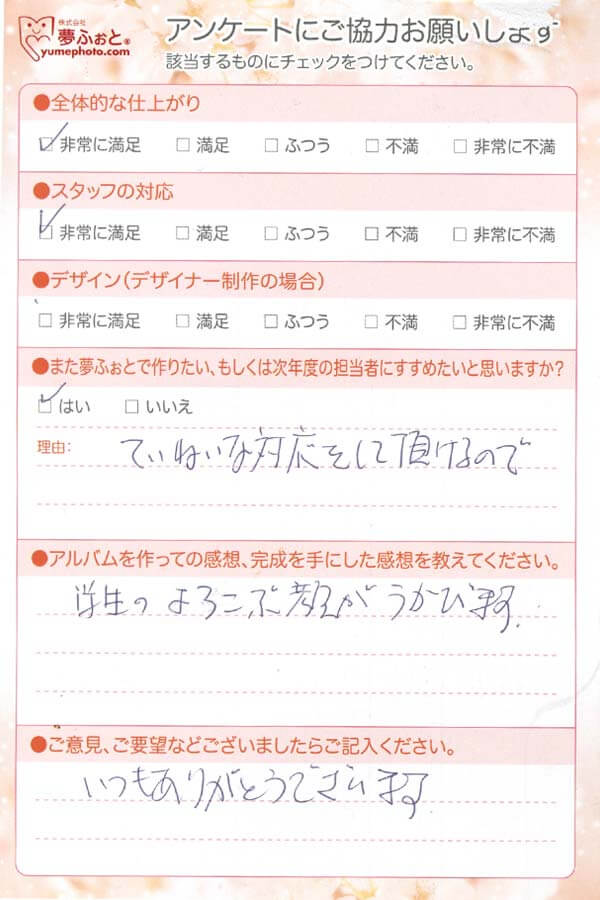 株式会社
夢ふぉと®
yumephoto.com
アンケートにご協力お願いします
該当するものにチェックをつけてください。
●全体的な仕上がり
☑ 非常に満足 □ 満足 □ ふつう □ 不満 □ 非常に不満
●スタッフの対応
☑ 非常に満足 □ 満足 □ ふつう □ 不満 □ 非常に不満
●デザイン(デザイナー制作の場合)
□ 非常に満足 □ 満足 □ ふつう □ 不満 □ 非常に不満
●また夢ふぉとで作りたい、もしくは次年度の担当者にすすめたいと思いますか?
☑ はい □ いいえ
理由: ていねいな対応をして頂けるので
●アルバムを作っての感想、完成を手にした感想を教えてください。
学生のよろこぶ顔がうかびます。
●ご意見、ご要望などございましたらご記入ください。
いつもありがとうございます